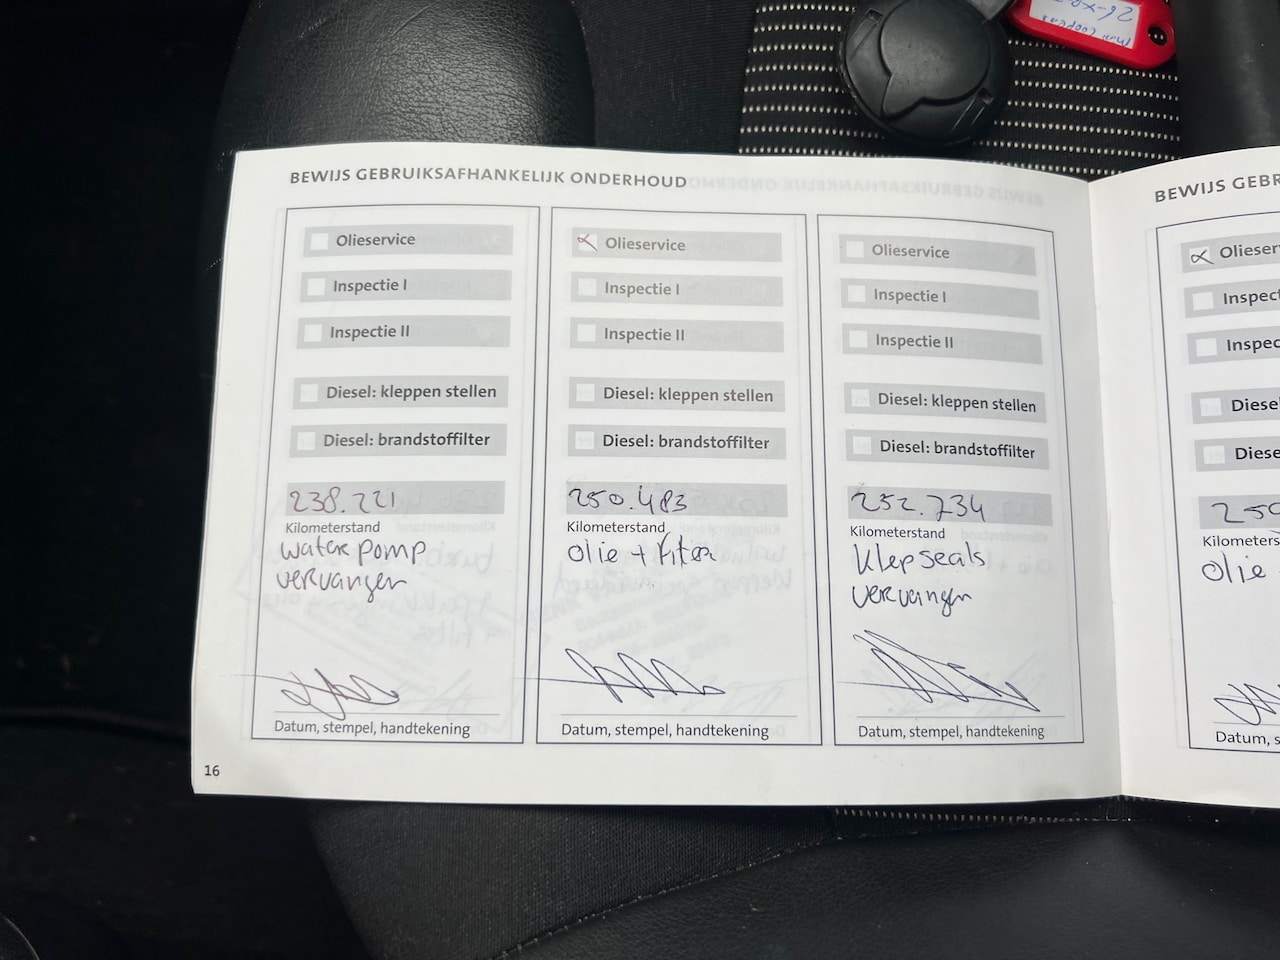 BEWIJS GEBRUIKSAFHANKELIJK ONDERHOUD
Olieservice
Inspectie I
Inspectie II
Diesel: kleppen stellen
Diesel: brandstoffilter
238.221
Kilometerstand
waterpomp
vervangen
Datum, stempel, handtekening
Olieservice
Inspectie I
Inspectie II
Diesel: kleppen stellen
Diesel: brandstoffilter
250.483
Kilometerstand
olie + filter
Datum, stempel, handtekening
Olieservice
Inspectie I
Inspectie II
Diesel: kleppen stellen
Diesel: brandstoffilter
252.734
Kilometerstand
Klepseals
vervangen
Datum, stempel, handtekening
16
BEWIJS GEBR
Olieser
Inspec
Inspec
Diese
Diese
Kilometers
olie
Datum, s